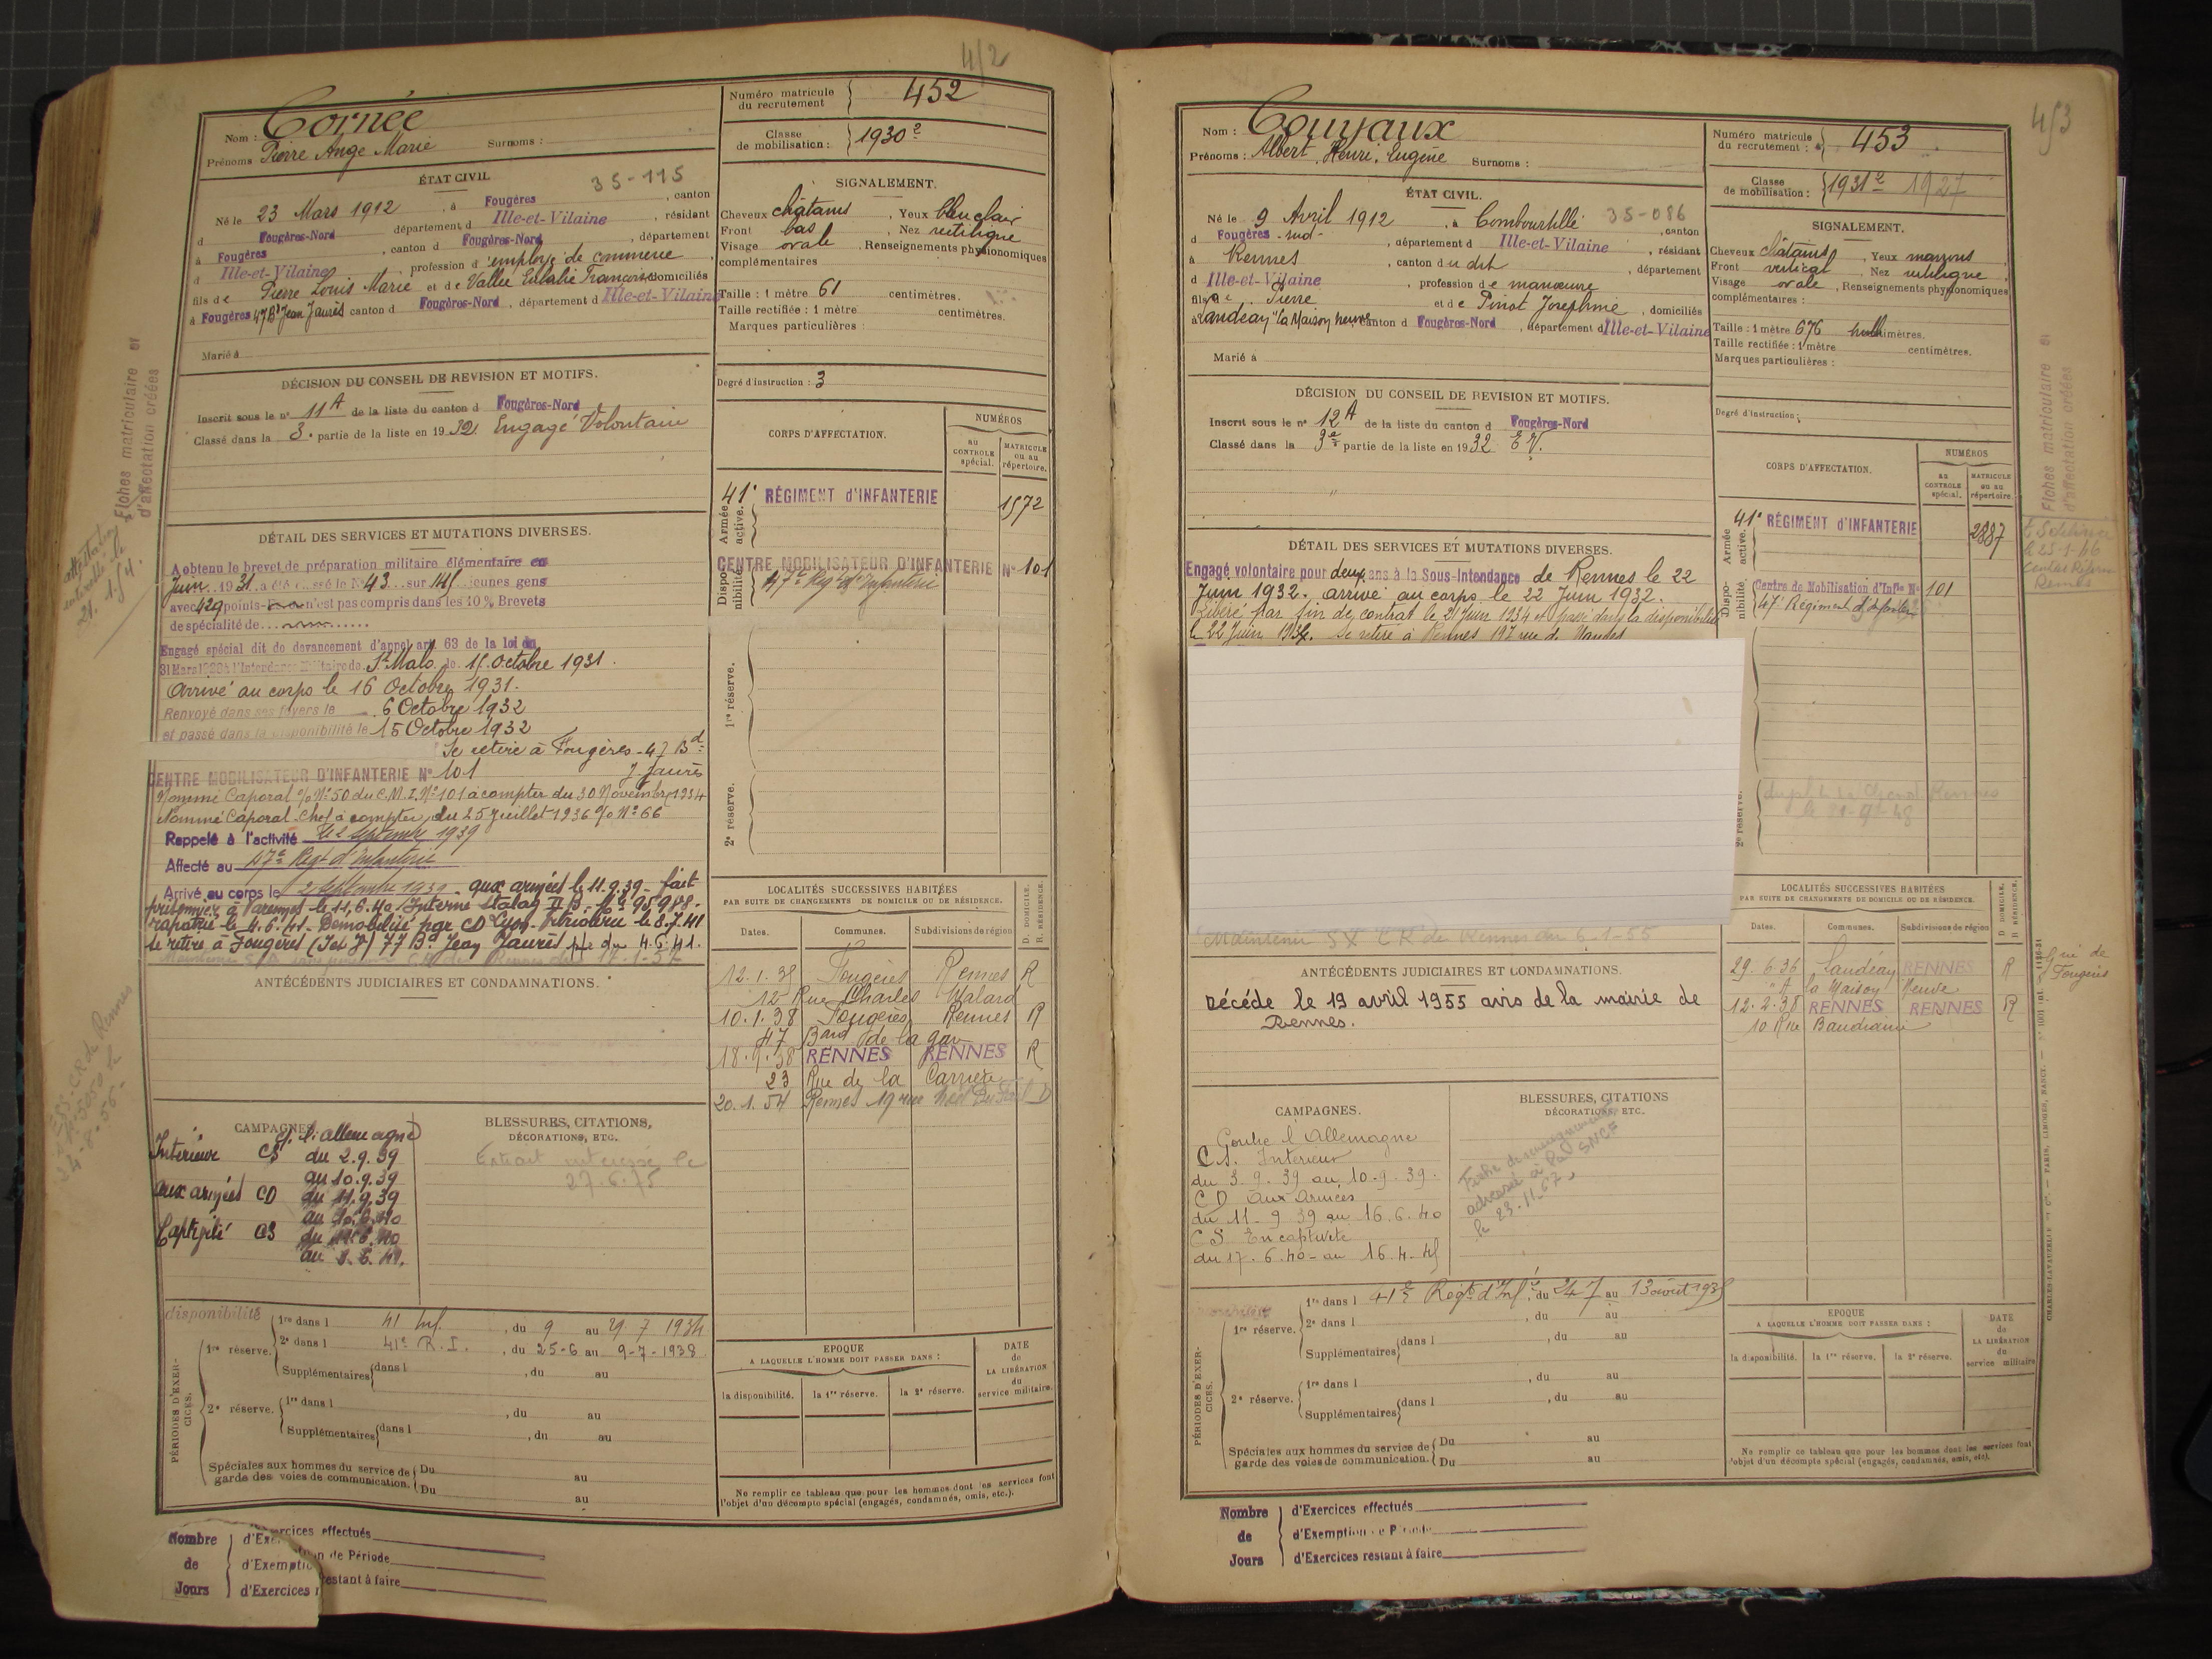 452
Nom : Cornée
Prénoms Pierre Ange Marie Surnoms :
Numéro matricule du recrutement 452
Classe de mobilisation : 1930
ÉTAT CIVIL
35-115
Né le 23 Mars 1912, à Fougères, canton
d Fougères-Nord département d Ille-et-Vilaine, résidant
à Fougères, canton d Fougères-Nord, département
d Ille-et-Vilaine, profession d employé de commerce,
fils de Pierre Louis Marie et de Vallée Eulalie Françoise domiciliés
à Fougères 47 Bd Jean Jaurès canton d Fougères-Nord, département d Ille-et-Vilaine
Marié à
SIGNALEMENT.
Cheveux châtains, Yeux bleu clair
Front bas, Nez rectiligne
Visage ovale, Renseignements physionomiques
complémentaires
Taille : 1 mètre 61 centimètres.
Taille rectifiée : 1 mètre centimètres.
Marques particulières :
Degré d'instruction : 3
DÉCISION DU CONSEIL DE REVISION ET MOTIFS.
Inscrit sous le n° 11 A de la liste du canton d Fougères-Nord
Classé dans la 3e partie de la liste en 1932. Engagé Volontaire
Fiches matriculaire et
d'affectation créées
DÉTAIL DES SERVICES ET MUTATIONS DIVERSES.
A obtenu le brevet de préparation militaire élémentaire en
Juin 1931
avec 429 points n'est pas compris dans les 10 % Brevets
de spécialité de
Engagé spécial dit de devancement d'appel art 63 de la loi du
St Malo le 15 Octobre 1931.
Arrivé au corps le 16 Octobre 1931.
Renvoyé dans ses foyers le 6 Octobre 1932
et passé dans la disponibilité le 15 Octobre 1932
Se retire à Fougères - 47 Bd
J. Jaurès
CENTRE MOBILISATEUR D'INFANTERIE N° 101
Nommé Caporal o/o N° 50 du C.M.I. N° 101 à compter du 30 Novembre 1934
Nommé Caporal-Chef à compter du 25 Juillet 1936 o/o N° 66
Rappelé à l'activité le 2 septembre 1939
Affecté au 47e Regt d'Infanterie
Arrivé au corps le 2 septembre 1939 - aux armées le 11.9.39 - fait
prisonnier à Varennes le 11.6.40 Interné Stalag II B - N° 95988 -
rapatrié le 4.6.41 - Démobilisé par CD Lyon le 8.7.41
Se retire à Fougères (I et V) 77 Bd Jean Jaurès 4.6.41.
ANTÉCÉDENTS JUDICIAIRES ET CONDAMNATIONS.
CORPS D'AFFECTATION.
NUMÉROS
AU CONTROLE spécial.
MATRICULE ou au répertoire.
Armée active.
41e RÉGIMENT d'INFANTERIE 1572
Disponibilité.
CENTRE MOBILISATEUR D'INFANTERIE N° 101
47e Regt d'Infanterie
1re réserve.
2e réserve.
LOCALITÉS SUCCESSIVES HABITÉES
PAR SUITE DE CHANGEMENTS DE DOMICILE OU DE RÉSIDENCE.
D. DOMICILE.
R. RÉSIDENCE.
Dates. Communes. Subdivisions de région
Fougères Rennes R
12 Rue Charles Malard
10.1.38 Fougères Rennes R
47 Bard de la gare
18.9.38 RENNES RENNES R
23 Rue de la Carrière
20.1.54 Rennes 19 rue D
CAMPAGNES
c/. l'allemagne
Intérieur CS du 2.9.39
au 10.9.39
aux armées CD du 11.9.39
au 10.6.40
Captivité CS du 11.6.40
BLESSURES, CITATIONS,
DÉCORATIONS, ETC.
27.6.75
disponibilité
PÉRIODES D'EXERCICES.
1re réserve.
1re dans l 41 Inf., du 9 au 29 7 1934
2e dans l 41e R.I., du 25-6 au 9-7-1938
Supplémentaires dans l, du au
2e réserve.
1re dans l, du au
Supplémentaires dans l, du au
Spéciales aux hommes du service de
garde des voies de communication.
Du au
Du au
EPOQUE
A LAQUELLE L'HOMME DOIT PASSER DANS :
la disponibilité. la 1re réserve. la 2e réserve.
DATE de LA LIBÉRATION du service militaire.
Ne remplir ce tableau que pour les hommes dont les services font
l'objet d'un décompte spécial (engagés, condamnés, omis, etc.).
Nombre de Jours
d'Exercices effectués
d'Exemption de Période
d'Exercices restant à faire
453
Nom : Couyaux
Prénoms : Albert, Henri, Eugène Surnoms :
Numéro matricule du recrutement : 453
Classe de mobilisation : 1931 1927
ÉTAT CIVIL.
Né le 9 Avril 1912, à Combourtillé 35-086, canton
d Fougères-sud, département d Ille-et-Vilaine, résidant
à Rennes, canton du dit, département
d Ille-et-Vilaine, profession de manœuvre
fils de Pierre et de Pinot Joséphine, domiciliés
à Landéan "la Maison neuve" canton d Fougères-Nord, département d Ille-et-Vilaine
Marié à
SIGNALEMENT.
Cheveux châtains, Yeux marrons
Front vertical, Nez rectiligne
Visage ovale, Renseignements physionomiques
complémentaires :
Taille : 1 mètre 676 millimètres.
Taille rectifiée : 1 mètre centimètres.
Marques particulières :
Degré d'instruction :
DÉCISION DU CONSEIL DE REVISION ET MOTIFS.
Inscrit sous le n° 12 A de la liste du canton d Fougères-Nord
Classé dans la 3e partie de la liste en 1932 E.V.
Fiches matriculaire et
d'affectation créées
DÉTAIL DES SERVICES ET MUTATIONS DIVERSES.
Engagé volontaire pour deux ans à la Sous-Intendance de Rennes le 22
Juin 1932. arrivé au corps le 22 Juin 1932.
Libéré par fin de contrat le 21 Juin 1934 et passé dans la disponibilité
le 22 Juin 1934. Se retire à Rennes 197 rue de Nantes
Maintenu SX CR de Rennes du 6-1-55
ANTÉCÉDENTS JUDICIAIRES ET CONDAMNATIONS.
Décédé le 19 avril 1955 avis de la mairie de
Rennes.
CORPS D'AFFECTATION.
NUMÉROS
AU CONTROLE spécial.
MATRICULE ou au répertoire
Armée active.
41e RÉGIMENT d'INFANTERIE 2887
Disponibilité.
Centre de Mobilisation d'Inf° N° 101
47e Régiment d'Infanterie
2e réserve.
LOCALITÉS SUCCESSIVES HABITÉES
PAR SUITE DE CHANGEMENTS DE DOMICILE OU DE RÉSIDENCE.
D DOMICILE.
R RÉSIDENCE.
Dates. Communes. Subdivisions de région
29.6.36 Landéan RENNES R
la Maison Neuve
12.2.38 RENNES RENNES R
10 Rue
CAMPAGNES.
Contre l'Allemagne
C.S. Intérieur
du 3.9.39 au 10.9.39.
CD Aux Armées
du 11-9 39 au 16.6.40
CS En captivité
du 17.6.40 - au 16.4-45
BLESSURES, CITATIONS
DÉCORATIONS, ETC.
Fiche de renseignements
adressée à la SNCF
le 23.11.67
PÉRIODES D'EXERCICES.
1re réserve.
1re dans l 41e Regt d'Inf., du 24 7 au 13 août 1935
2e dans l, du au
Supplémentaires dans l, du au
2e réserve.
1re dans l, du au
Supplémentaires dans l, du au
Spéciales aux hommes du service de
garde des voies de communication.
Du au
Du au
EPOQUE
A LAQUELLE L'HOMME DOIT PASSER DANS :
la disponibilité. la 1re réserve. la 2e réserve.
DATE de LA LIBÉRATION du service militaire
Ne remplir ce tableau que pour les hommes dont les services font
l'objet d'un décompte spécial (engagés, condamnés, omis, etc.).
CHARLES-LAVAUZELLE et Cie. — PARIS, LIMOGES, NANCY.
Nombre de Jours
d'Exercices effectués
d'Exemption de Période
d'Exercices restant à faire